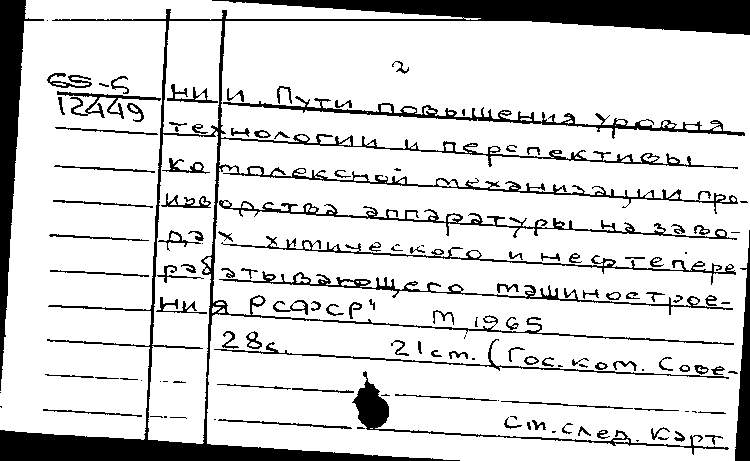 2
65-5
12449
нии. Пути повышения уровня
технологии и перспективы
комплексной механизации про-
изводства аппаратуры на заво-
дах химического и нефтепере-
рабатывающего машинострое-
ния РСФСР". М, 1965
28с. 21см. (Гос. ком. Сове-
см. след. карт